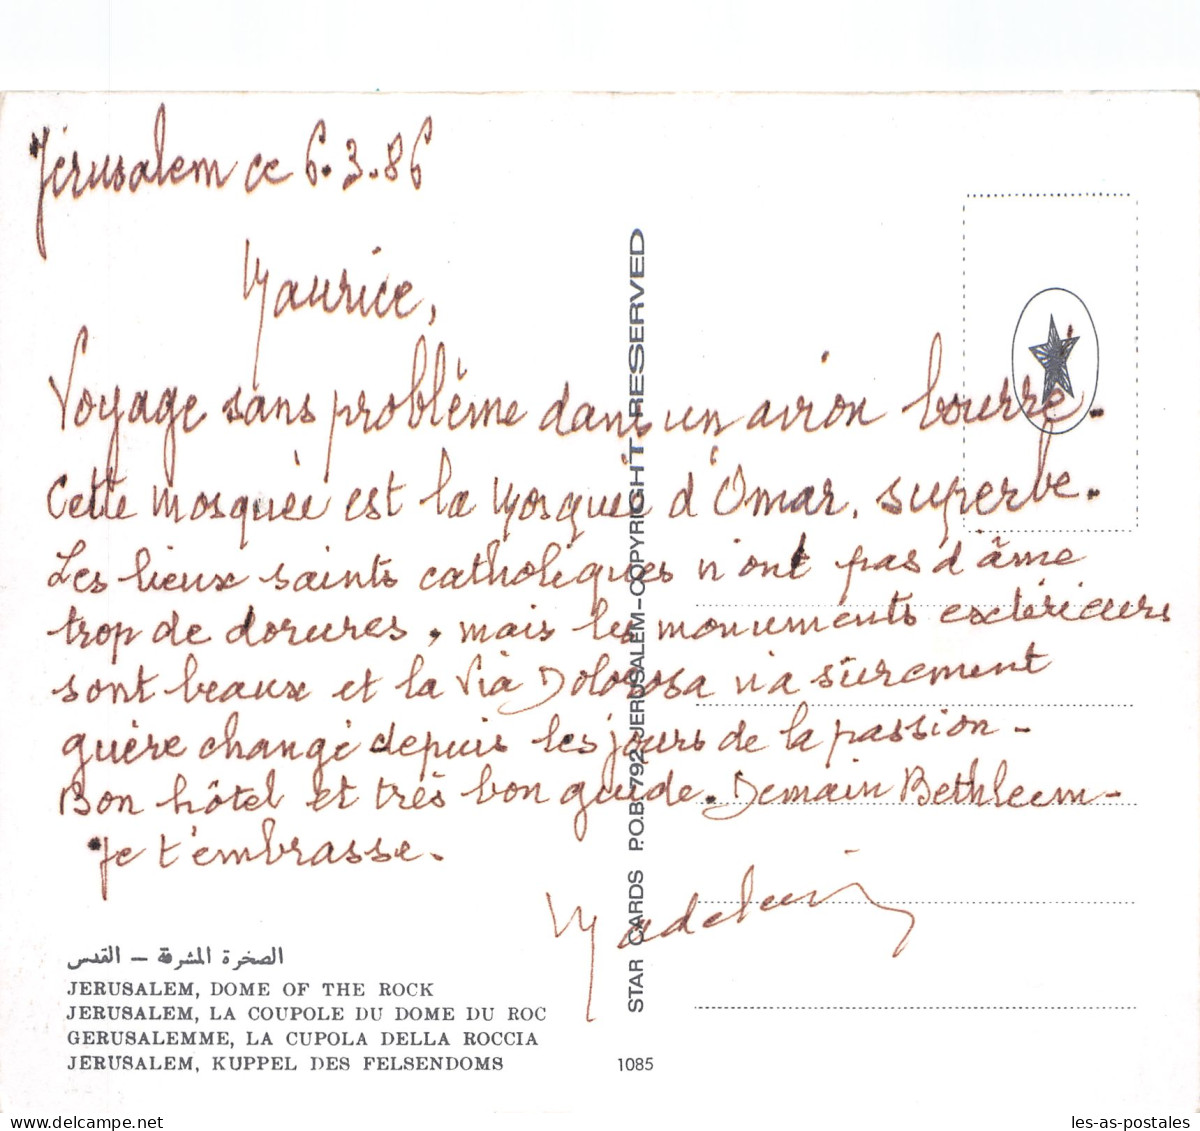 Jérusalem ce 6.3.86
Maurice,
Voyage sans problème dans un avion bourré.
Cette mosquée est la Mosquée d'Omar, superbe.
Les lieux saints catholiques n'ont pas d'âme
trop de dorures, mais les monuments extérieurs
sont beaux et la Via Dolorosa n'a sûrement
guère changé depuis les jours de la passion -
Bon hôtel et très bon guide. Demain Bethleem -
Je t'embrasse.
Madeleine
الصخرة المشرفة – القدس
JERUSALEM, DOME OF THE ROCK
JERUSALEM, LA COUPOLE DU DOME DU ROC
GERUSALEMME, LA CUPOLA DELLA ROCCIA
JERUSALEM, KUPPEL DES FELSENDOMS
STAR CARDS P.O.B. 792 JERUSALEM – COPYRIGHT RESERVED
1085
les-as-postales